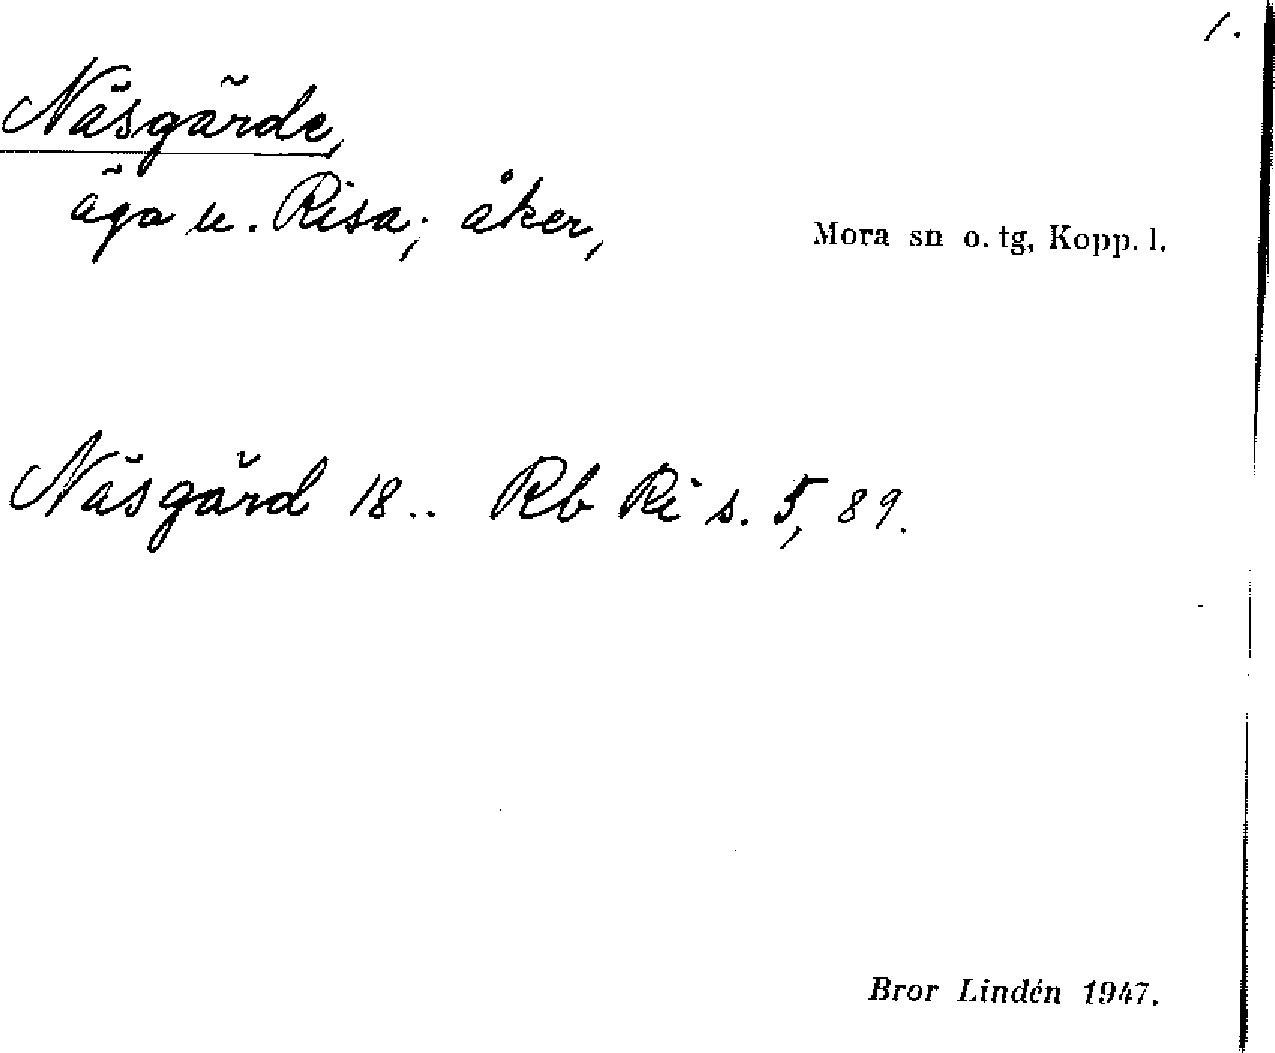 1.
Näsgärde,
äga u. Risa; åker,
Mora sn o. tg, Kopp. l.
Näsgärd 18.. Rb Ri s. 5, 89.
Bror Lindén 1947.